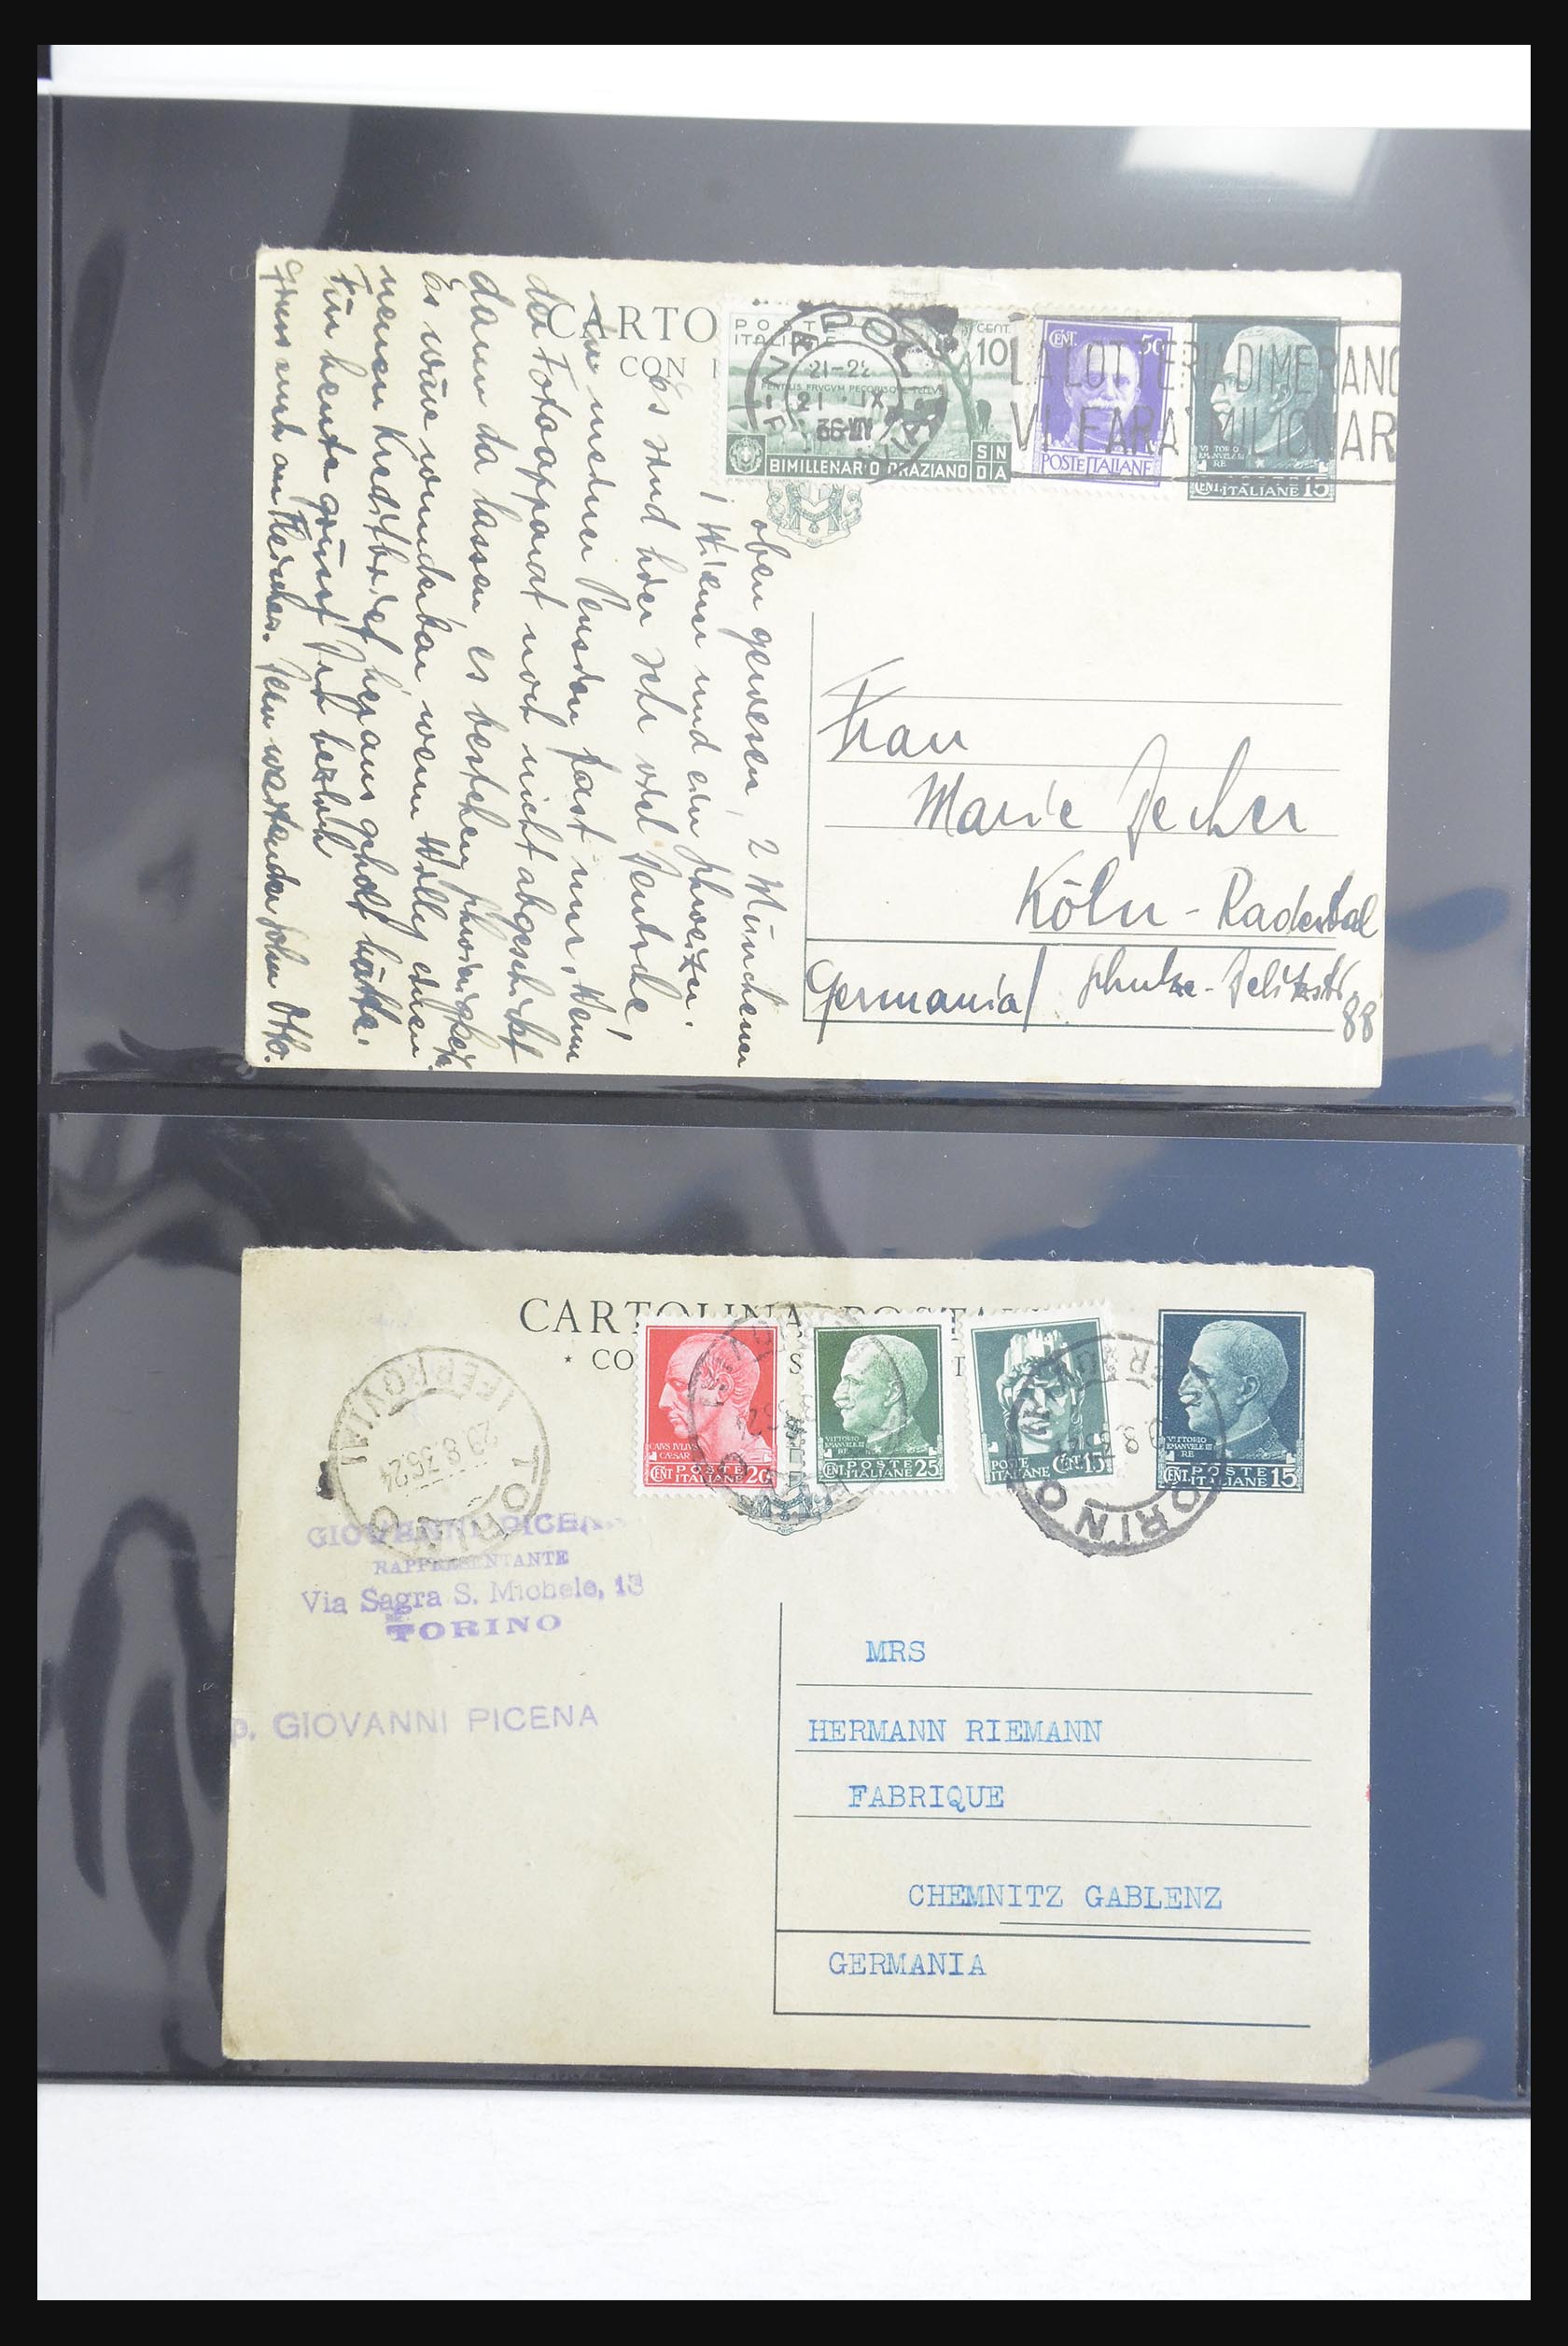 CARTO
CON
POSTE
ITALIANE
CENT.
10
BIMILLENARIO ORAZIANO
CENT. 50
POSTE ITALIANE
VITTORIO
EMANUELE III
RE
CENT. ITALIANE 15
21-22
21 · IX
36-XIV
LA LOTTERIA DI MERANO
VI FARA' MILIONARI
oben gewesen, 2 Münchener
1 Wiener und ein Schweizer.
Es sind hier sehr viel Deutsche,
in meiner Pension fast nur. Wenn
der Fotoapparat noch nicht abgeschickt
dann da lassen, es bestehen Schwierigkeit.
Es wäre wunderbar wenn Willy einen
neuen Kreditbrief heraus geholt hätte.
Für heute grüsst Dich herzlich
Gruss auch an Fleischer. Dein Sohn Otto.
Frau
Marie Jecher
Köln - Raderthal
Germania / Schulze-Delitzschstr.
88
CARTOLINA POSTAL
CO
CAIVS IVLIVS
CAESAR
CENT. POSTE ITALIANE 20
VITTORIO
EMANUELE III
RE
CENT. POSTE ITALIANE 25
POSTE
ITALIANE CENT. 15
VITTORIO
EMANUELE III
RE
CENT. POSTE ITALIANE 15
TORINO
FERROVIA
29.8.36.24
GIOVANNI PICENA
RAPPRESENTANTE
Via Sagra S. Michele, 13
TORINO
p. GIOVANNI PICENA
MRS
HERMANN RIEMANN
FABRIQUE
CHEMNITZ GABLENZ
GERMANIA